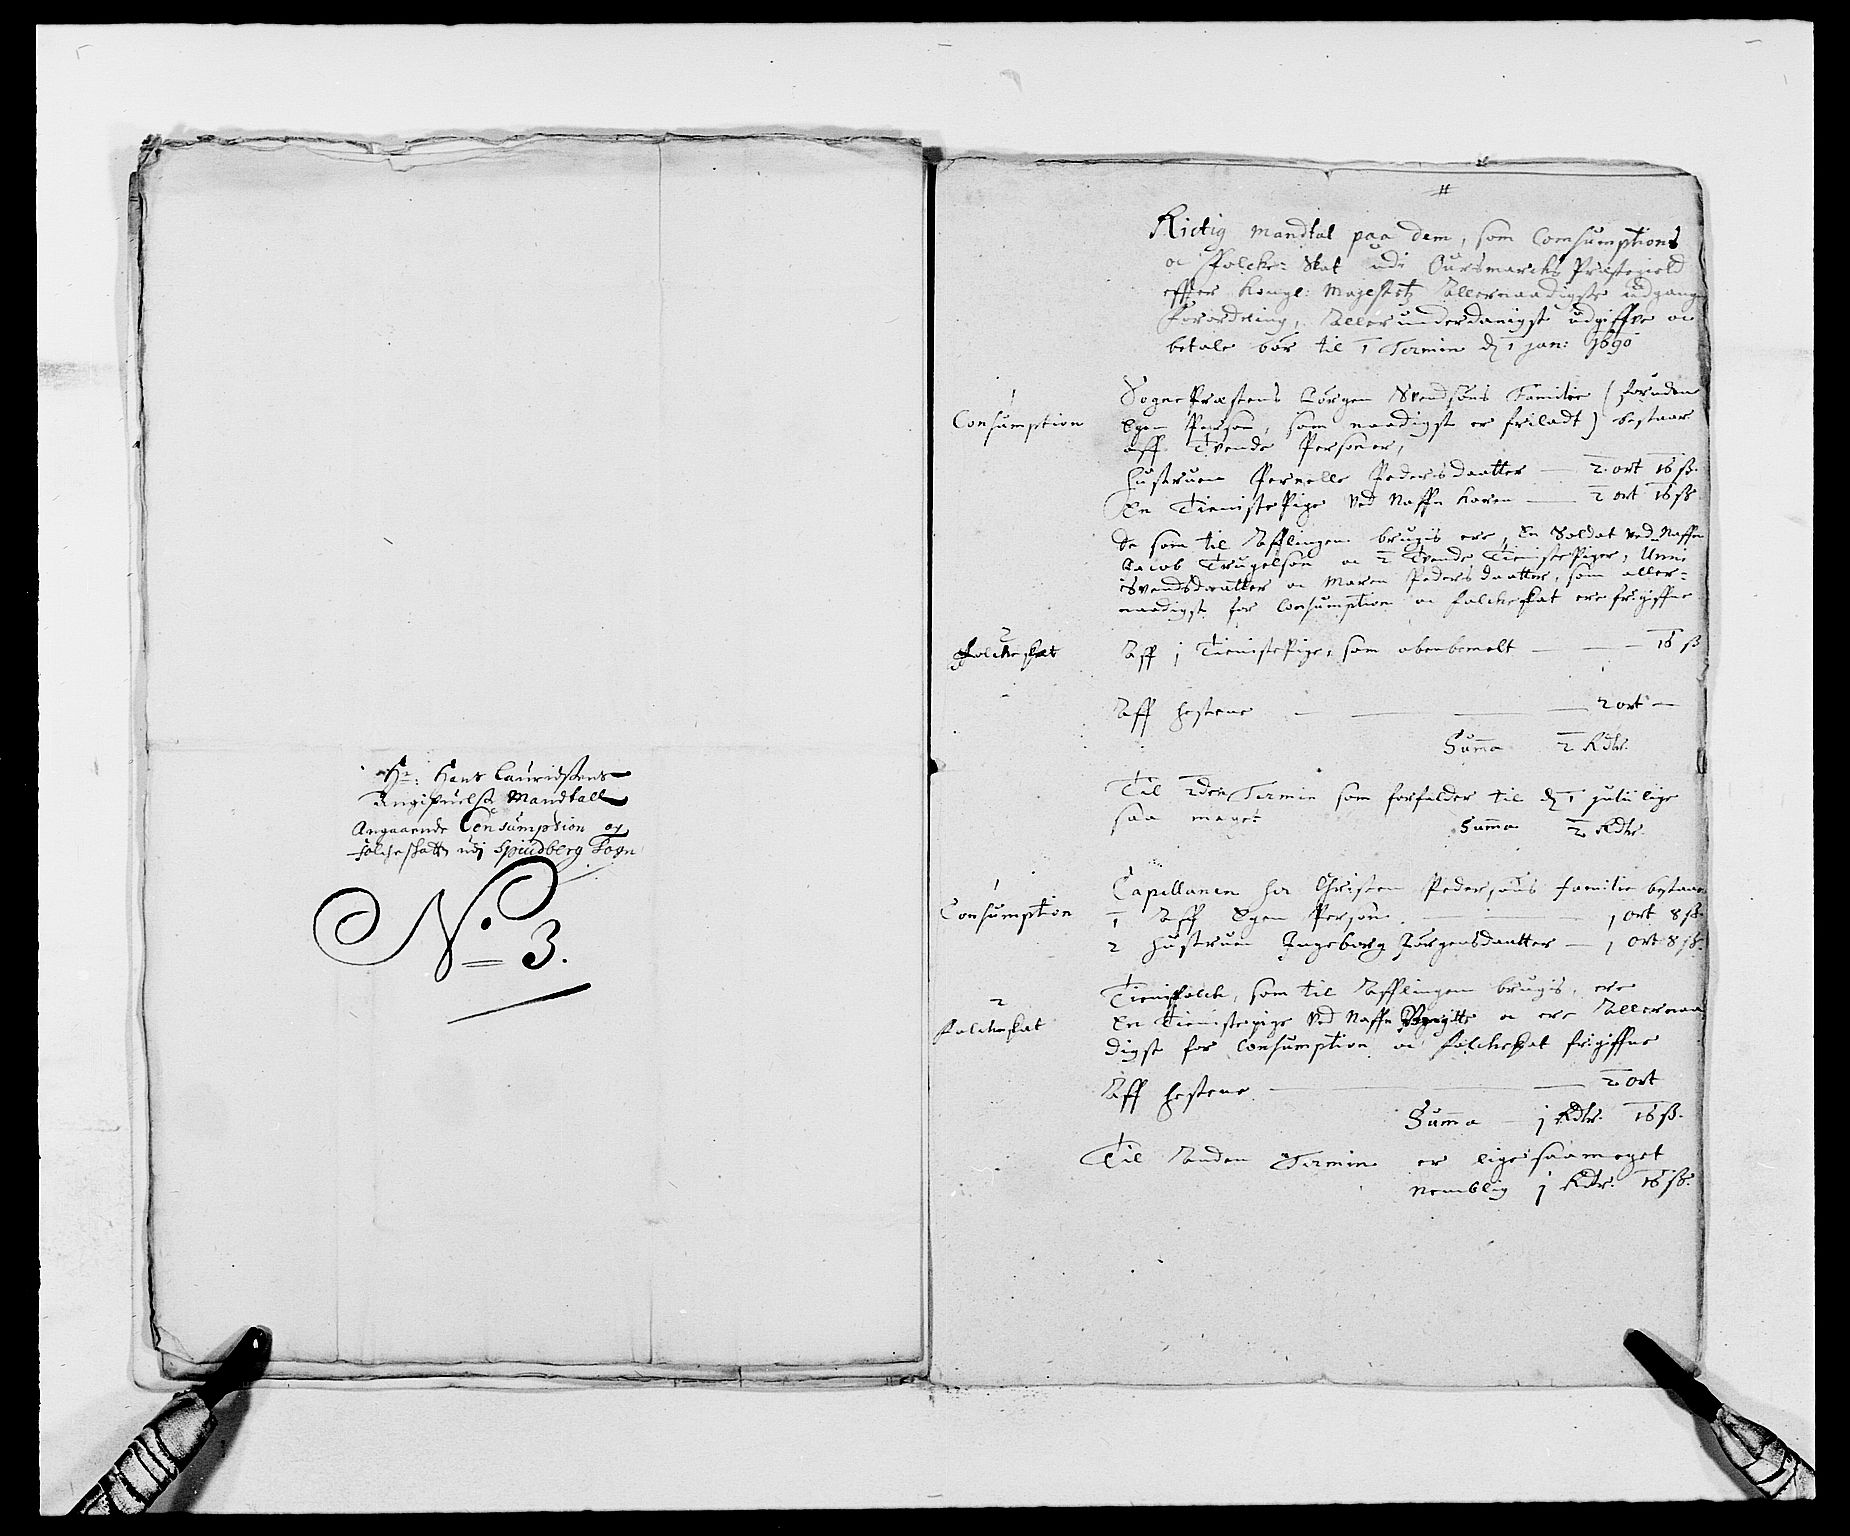 Hr: Hans Lauridsens
Angifuelse Mandtall
Angaaende Consumption og
folcheskatt udj Spiudberg Sogn
No. 3.
Rictig Mandtal paa dem, som Consumptions
oc Folche-Skat udi Oursmarchs Præstegield
effter Kongl: Mayestetz Allernaadigste udgangne
Forordning, Allerunderdanigst udgiffve oc
betale bør til 1 Termin d. 1 Jan: 1690
1
Consumption
SognePræstens Jørgen Svendsøns Familie (foruden
Egen Person, som naadigst er friladt) bestaar
aff Tvende Personer,
Hustruen Pernelle Pedersdaatter — 2 ort 16 ß.
En TienistePige ved Naffn Karen — 2 ort 16 ß
De som til Afflingen brugis ere, En Soldat ved Naffn
Jacob Trugelsøn oc 2 Tvende TienistePiger, Unni
Svendsdaatter oc Maren Pedersdaatter, som aller-
naadigst for Consumption oc folcheskat ere frigiffne
2
Folcheskat
Aff j TienistePige, som ovenbemelt — — — 16 ß
Aff Hestene — — — — 2 ort —
Summa 2 Rdlr.
Til 2den Termin som forfalder til d. 1 Julii lige
saa meget
Summa 2 Rdlr.
1
Consumption
Capellanen Hr Christen Pedersøns familie bestaar
1 Aff Egen Person — — — j ort 8 ß.
2 Hustruen Ingeborg Jørgensdaatter — j ort 8 ß.
2
Folcheskat
Tienistfolch, som til Afflingen brugis, ere
En Tienistepige ved Naffn Birgitte oc ere Allernaa
digst for Consumption oc folcheskat frigiffne
Aff Hestene — — — 2 ort
Summa — j Rdlr. 16 ß.
Til Anden Termin er ligesaameget
Nemblig j Rdlr. 16 ß.